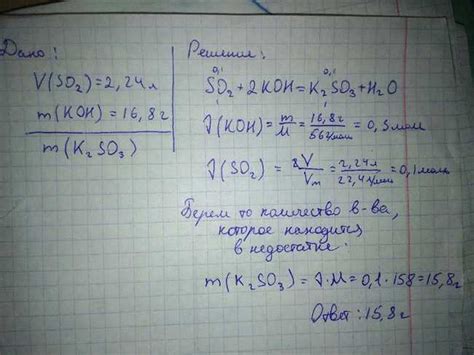 Дано:
V(SO₂)=2,24л
m(KOH)=16,8г
m(K₂SO₃)
Решение:
0,1 0,1
SO₂+2KOH=K₂SO₃+H₂O
1 1
ν(KOH)=m/M=16,8г/56г/моль=0,3моль
ν(SO₂)=V/Vm=2,24л/22,4л/моль=0,1моль
Берем то количество в-ва,
которое находится
в недостатке.
m(K₂SO₃)=ν·M=0,1·158=15,8г
Ответ:15,8г